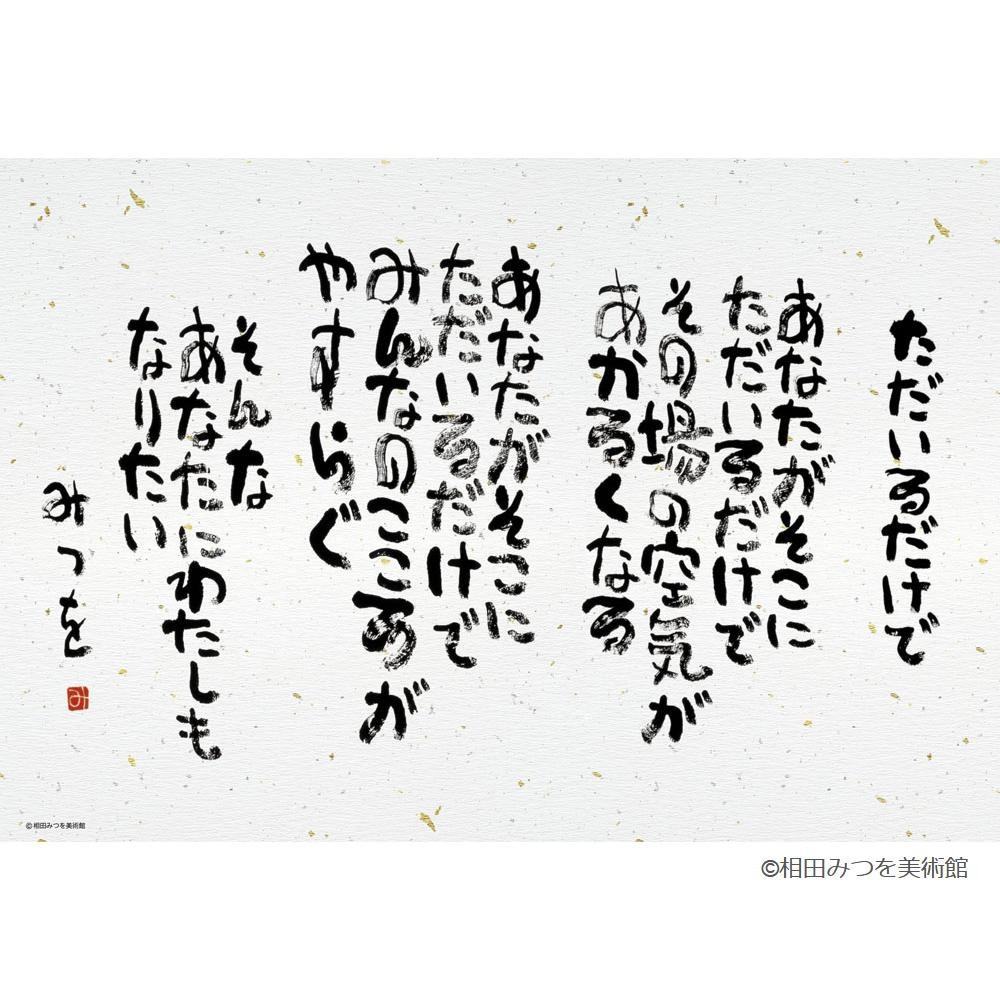 ただいるだけで
あなたがそこに
ただいるだけで
その場の空気が
あかるくなる
あなたがそこに
ただいるだけで
みんなのこころが
やすらぐ
そんな
あなたにわたしも
なりたい
みつを
み
©相田みつを美術館
©相田みつを美術館